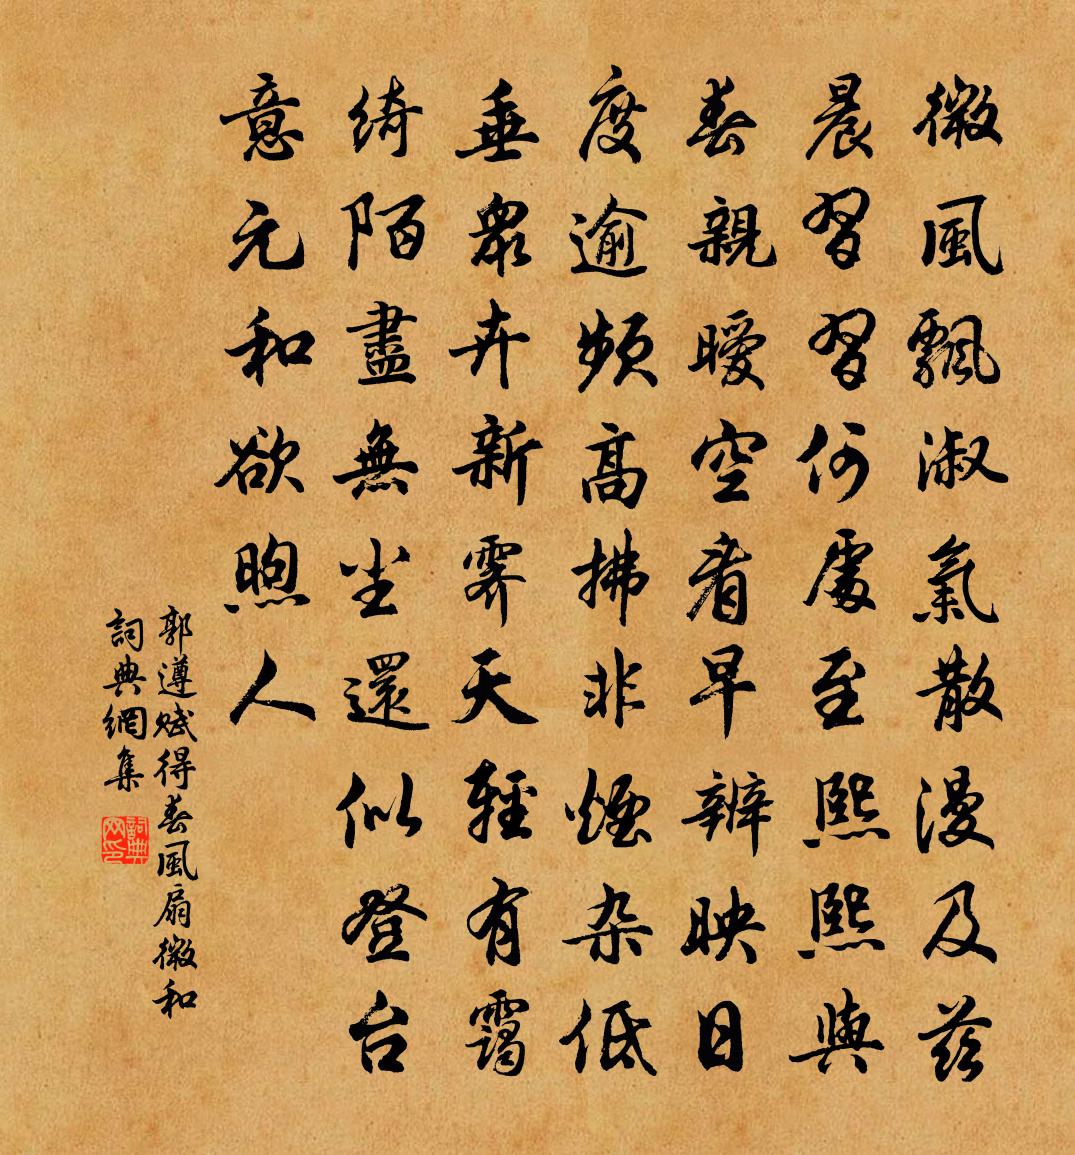 微風飄淑氣散漫及茲
晨習習何處至熙熙與
春親曖空看早辨映日
度逾頻高拂非煙杂低
垂眾卉新霽天輕有靄
綺陌盡無尘還似登台
意元和欲煦人
郭遵賦得春風扇微和
詞典網集
詞典网印